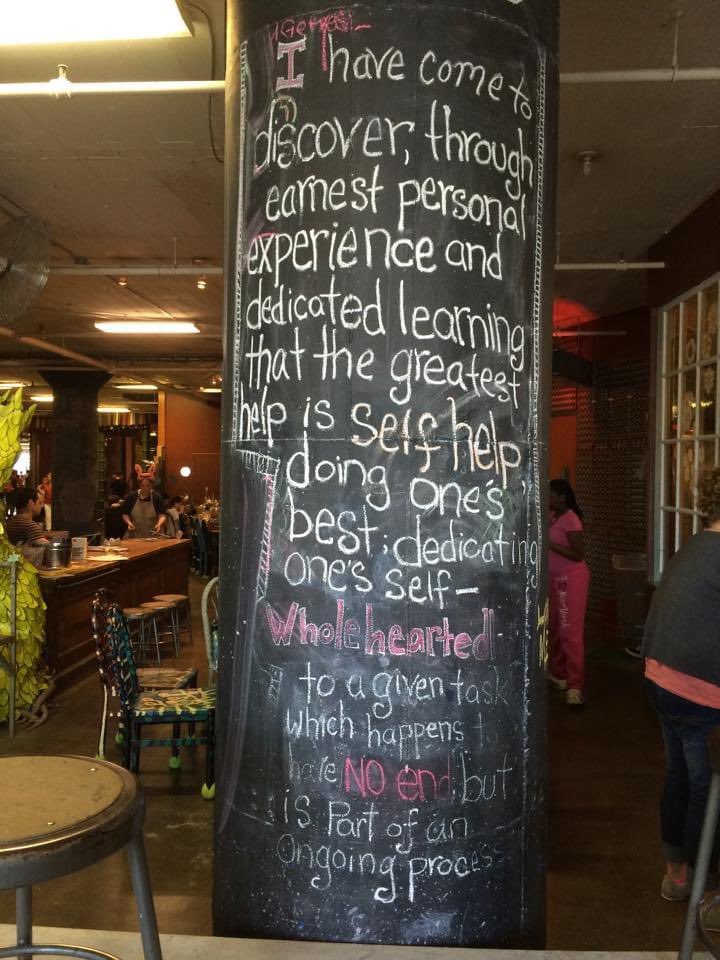 I have come to
discover, through
earnest personal
experience and
dedicated learning
that the greatest
help is self help,
doing one's
best; dedicating
one's self—
Wholehearted
to a given task
which happens to
have NO end but
is Part of an
Ongoing process